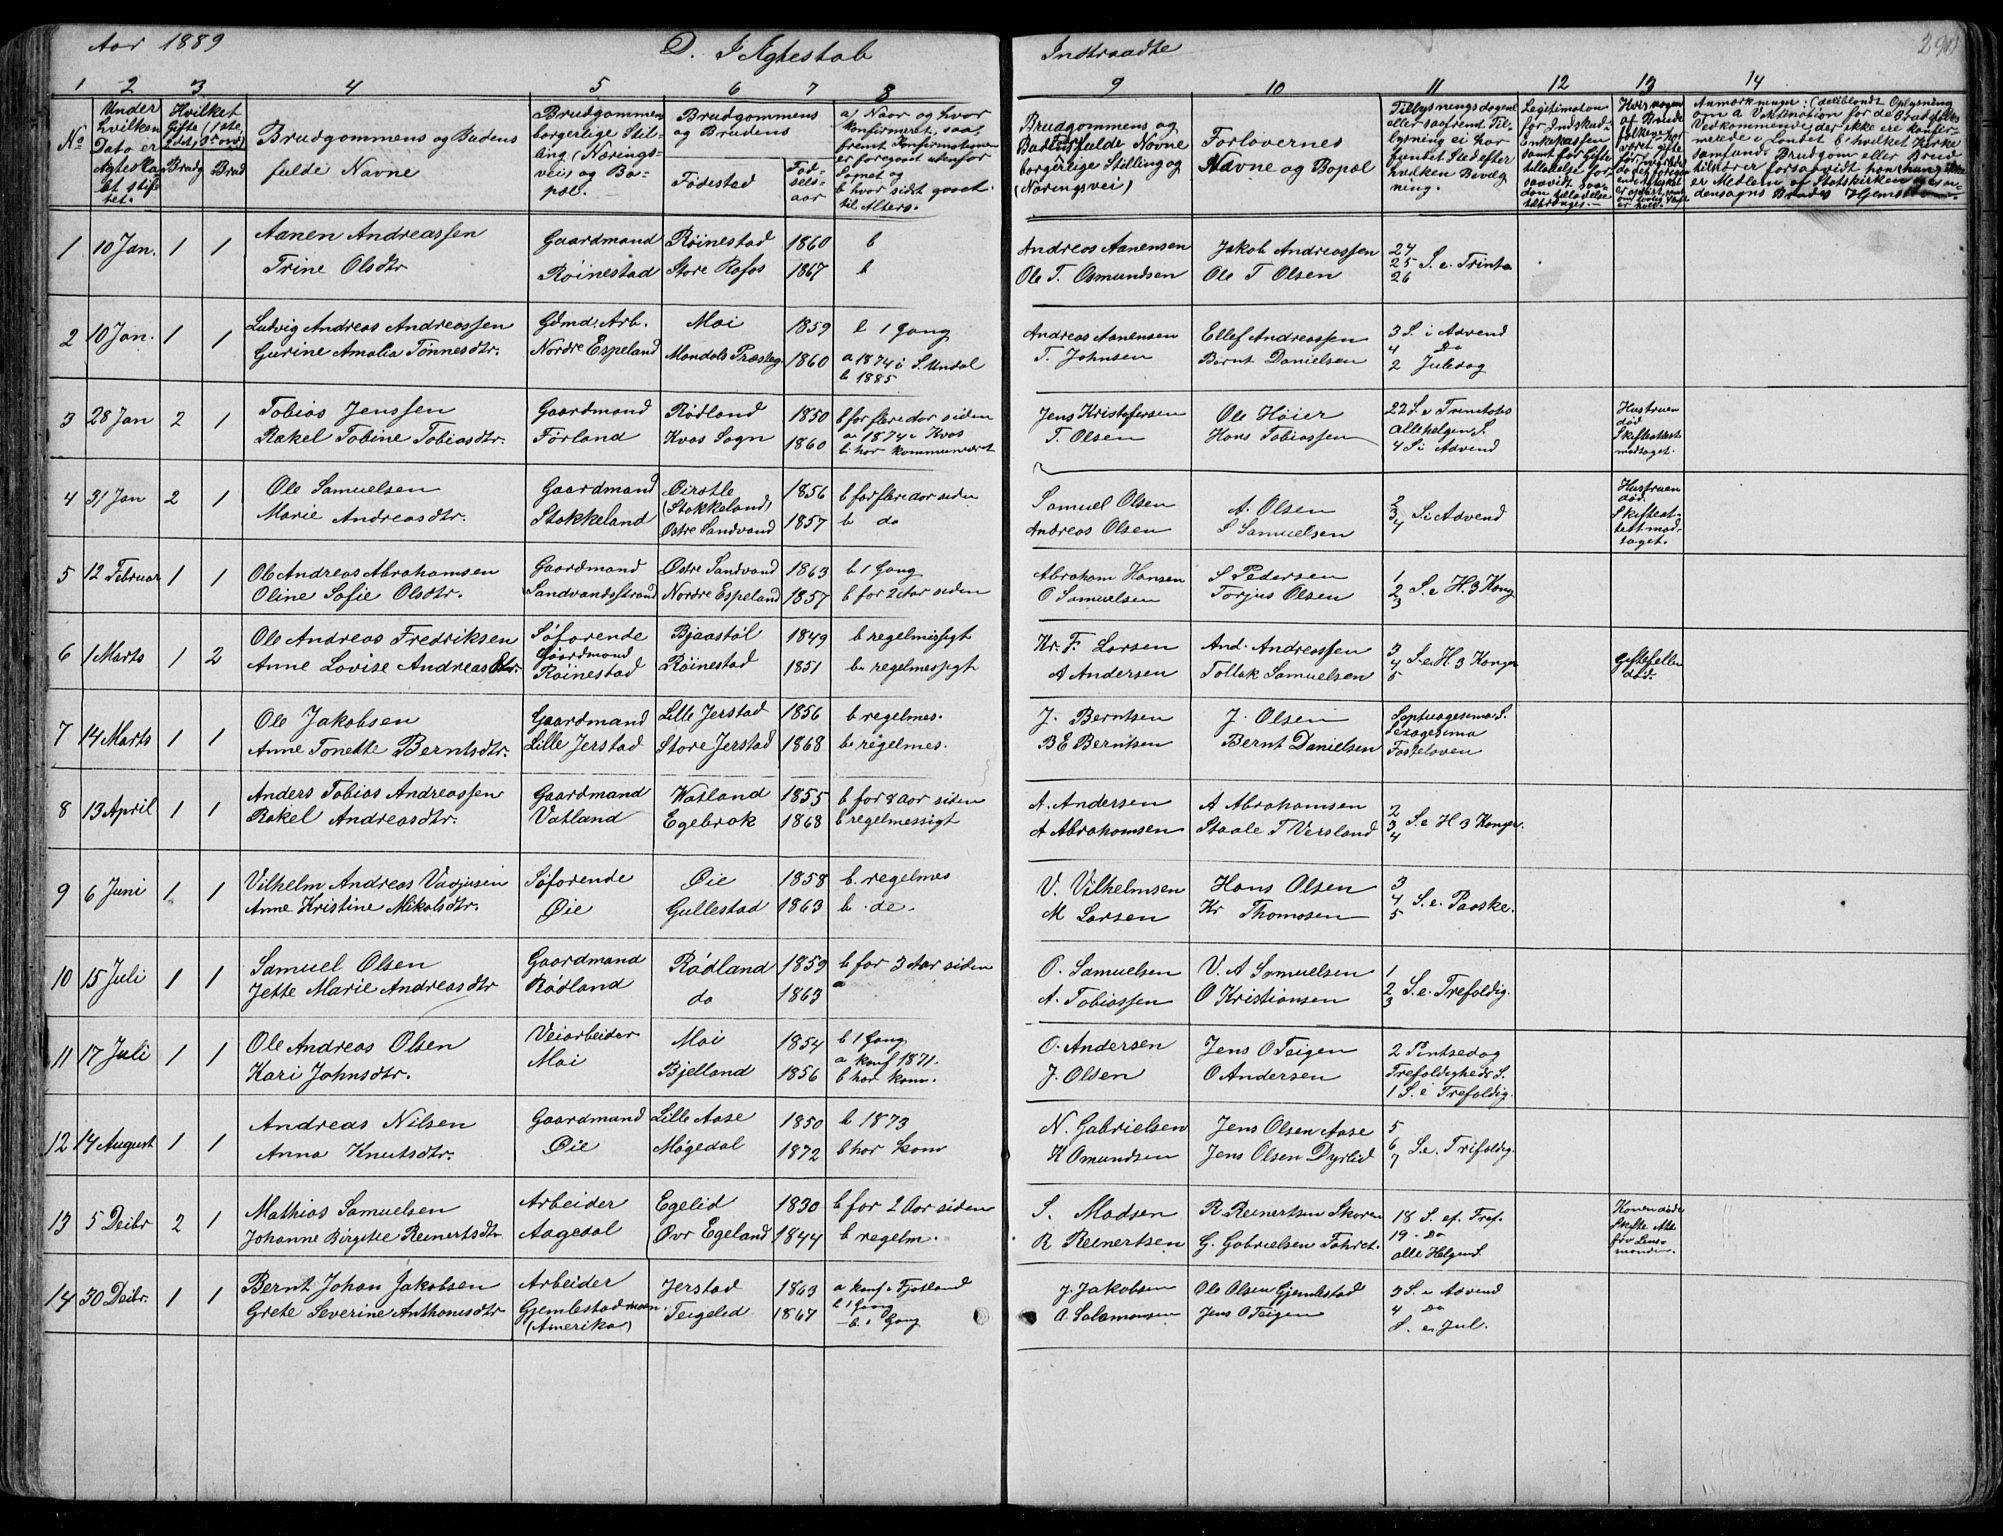 Aar 1889 D. I Ægtestab Indtraadte 290
1 2 3 4 5 6 7 8 9 10 11 12 13 14
No
Under hvilken Dato er Ægteskabet stiftet.
Hvilket Gifte (1ste 2det, 3die osv)
Brudg Brud
Brudgommens og Budens fulde Navne
Brudgommens borgerlige Stilling (Næringsvei) og Bopæl.
Brudgommens og Brudens
Fødestad
Fødselsaar
a) Naar og hvor konfirmeret, saafremt Konfirmationen er foregaaet udenfor Sognet og
b hvor sidst gaaet til Alters.
Brudgommens og Brudens Fædres fulde Navne borgerlige Stilling og (Næringsvei)
Forlovernes Navne og Bopæl
Tillysningsdagene eller saafremt Tillysning ei har fundet Sted efter hvilken Bevilgning.
Legitimation for Indskud i Enkekassen samt for Giftetilladelse for saavidt saadan Tilladelse tiltrænges.
1 10 Jan. 1 1 Aanen Andreassen Gaardmand Røinestad 1860 b Andreas Aanensen Jakob Andreassen 24
Trine Olsdtr Røinestad Store Rafos 1867 b Ole T. Osmundsen Ole T Olsen 25 S. e. Trinta
26
2 10 Jan. 1 1 Ludvig Andreas Andreassen Gdmd. Arb. Moi 1859 b 1 Gang Andreas Aanensen Ellef Andreassen 3 S. i Advend
Gurine Amalia Tønnesdtr. Nordre Espeland Mandals Præsteg 1860 a 1874 i S. Undal T. Johnsen Bernt Danielsen 4 Do
b 1885 2 Juledag
3 28 Jan 2 1 Tobias Jenssen Gaardmand Rødland 1850 b for flere Aar siden Jens Kristofersen Ole Høier 22 S. e Trinitatis Hustruen
Rakel Tobine Tobiasdtr. Førland Kvas Sogn 1860 a 1874 i Kvas T. Olsen Hans Tobiassen Allehelgen S. død
b. har kommuneret 4 S i Advend Skifteattest
modtaget.
4 31 Jan 2 1 Ole Samuelsen Gaardmand Øiratle 1856 b for flere Aar siden Samuel Olsen A. Olsen 2 Hustruen
(Stokkeland) død.
Marie Andreasdtr. Stokkeland Østre Sandvand 1857 b do Andreas Olsen S Samuelsen 3 S i Advend Skifteat-
4 test mod-
taget.
5 12 Februar 1 1 Ole Andreas Abrahamsen Gaardmand Østre Sandvand 1863 b 1 Gang Abraham Hansen S Pedersen 1
Oline Sofie Olsdtr. Sandvandsstrand Nordre Espeland 1857 b for 2 Aar siden O Samuelsen Torjus Olsen 2 S. e H. 3 Kong
3
6 1 Marts 1 2 Ole Andreas Fredriksen Søfarende Bjaastøl 1849 b regelmissigt Kr. F. Larsen And. Andreassen 3
Gaardmand
Anne Lovise Andreasdtr. Røinestad Røinestad 1851 b. regelmessigt A Andersen Tollak Samuelsen 4 S. e. H. 3 Konger Giftefellen
5 død.
7 14 Marts 1 1 Ole Jakobsen Gaardmand Lille Jerstad 1856 b regelmes. J. Berntsen J. Olsen Septuagesima S.
Anne Tonette Berntsdtr. Lille Jerstad Store Jerstad 1868 b. regelmes. B E Berntsen Bernt Danielsen Sexagesima
Fastelaven
8 13 April 1 1 Anders Tobias Andreassen Gaardmand Vatland 1855 b for 8 Aar siden A. Andersen A Abrahamsen 2
Rakel Andreasdtr. Vatland Egebrok 1868 b regelmessigt A Abrahamsen Staale T Versland 3 S. e H 3 Konger.
4
9 6 Juni 1 1 Vilhelm Andreas Søfarende Øie 1858 b. regelmes V. Vilhelmsen Hans Olsen 3
Anne Kristine Mikalsdtr. Øie Gullestad 1863 b. do. M Larsen Kr Thomasen 4 S. e. Paaske.
5
10 15 Juli 1 1 Samuel Olsen Gaardmand Rødland 1859 b for 3 Aar siden O. Samuelsen V. A Samuelsen 1
Jette Marie Andreasdtr Rødland do 1863 A. Tobiassen O Kristiansen 2 S. e. Trefoldig.
3
11 17 Juli 1 1 Ole Andreas Olsen Veiarbeider Moi 1854 b 1 Gang O. Andersen Jens O Teigen 2 Pintsedag
Kari Johnsdtr. Moi Bjelland 1856 a konf 1871. J. Olsen O Andersen Trefoldigheds S.
b har kom. 1 S. e Trefoldig.
12 14 August 1 1 Andreas Nilsen Gaardmand Lille Aase 1850 b 1873 N. Gabrielsen Jens Olsen Aase 5
Anna Knutsdtr. Øie Møgedal 1872 b har kom K Omundsen Jens Olsen Dyrlid 6 S. e. Trifoldig.
7
13 5 Deibr 2 1 Mathias Samuelsen Arbeider Egelid 1830 b for 2 Aar siden S. Madsen R Reinertsen Skoren 18 S. ef. Tref. Konen døde
Johanne Birgitte Reinertsdtr Aagedal Øvr Egeland 1844 b regelm. R Reinertsen G. Gabrielsen 19 Do Skifte Att
alle Helgen S. fra Lens-
manden.
14 30 Deibr. 1 1 Bernt Johan Jakobsen Arbeider Jerstad 1863 a konf i Fjotland J. Jakobsen Ole Olsen Gjemlestad 3 S. i Advend
b 1 Gang
Grete Severine Anthonisdtr Gjemlestad Teigelid 1867 b. 1 Gang A. Salamonsen Jens O Teigen 4 Do
(Amerika) S. e. Jul.